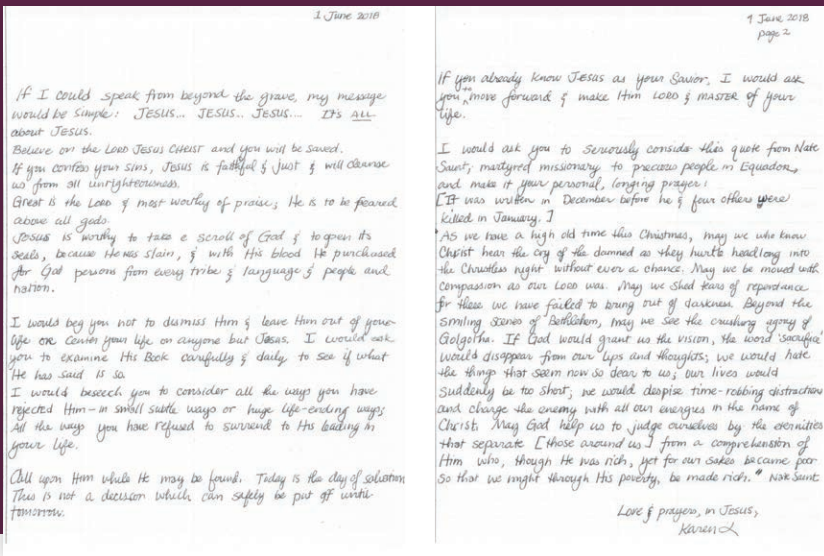 1 June 2018
If I could speak from beyond the grave, my message
would be simple: JESUS... JESUS... JESUS.... It's ALL
about JESUS.
Believe on the LORD JESUS CHRIST and you will be saved.
If you confess your sins, Jesus is faithful & just & will cleanse
us from all unrighteousness.
Great is the LORD & most worthy of praise; He is to be feared
above all gods.
Jesus is worthy to take a scroll of God & to open its
seals, because He was slain, & with His blood He purchased
for God persons from every tribe & language & people and
nation.
I would beg you not to dismiss Him & leave Him out of your
life OR center your life on anyone but Jesus. I would ask
you to examine His Book carefully & daily to see if what
He has said is so.
I would beseech you to consider all the ways you have
rejected Him – in small subtle ways or huge life-ending ways;
All the ways you have refused to surrend to His leading in
your life.
Call upon Him while He may be found. Today is the day of salvation
This is not a decision which can safely be put off until
tomorrow.
1 June 2018
page 2
If you already know JESUS as your Savior, I would ask
you to move forward & make Him LORD & MASTER of your
life.
I would ask you to seriously consider this quote from Nate
Saint, martyred missionary to precious people in Equador,
and make it your personal, longing prayer:
[It was written in December before he & four others were
killed in January.]
"AS we have a high old time this Christmas, may we who know
Christ hear the cry of the damned as they hurtle headlong into
the Christless night without ever a chance. May we be moved with
compassion as our LORD was. May we shed tears of repentance
for these we have failed to bring out of darkness. Beyond the
smiling scenes of Bethlehem, may we see the crushing agony of
Golgotha. If God would grant us the vision, the word 'sacrifice'
would disappear from our lips and thoughts; we would hate
the things that seem now so dear to us; our lives would
suddenly be too short; we would despise time-robbing distraction
and charge the enemy with all our energies in the name of
Christ. May God help us to judge ourselves by the eternities
that separate [those around us] from a comprehension of
Him who, though He was rich, yet for our sakes became poor
so that we might through His poverty, be made rich." Nate Saint
Love & prayers, in Jesus,
Karen L